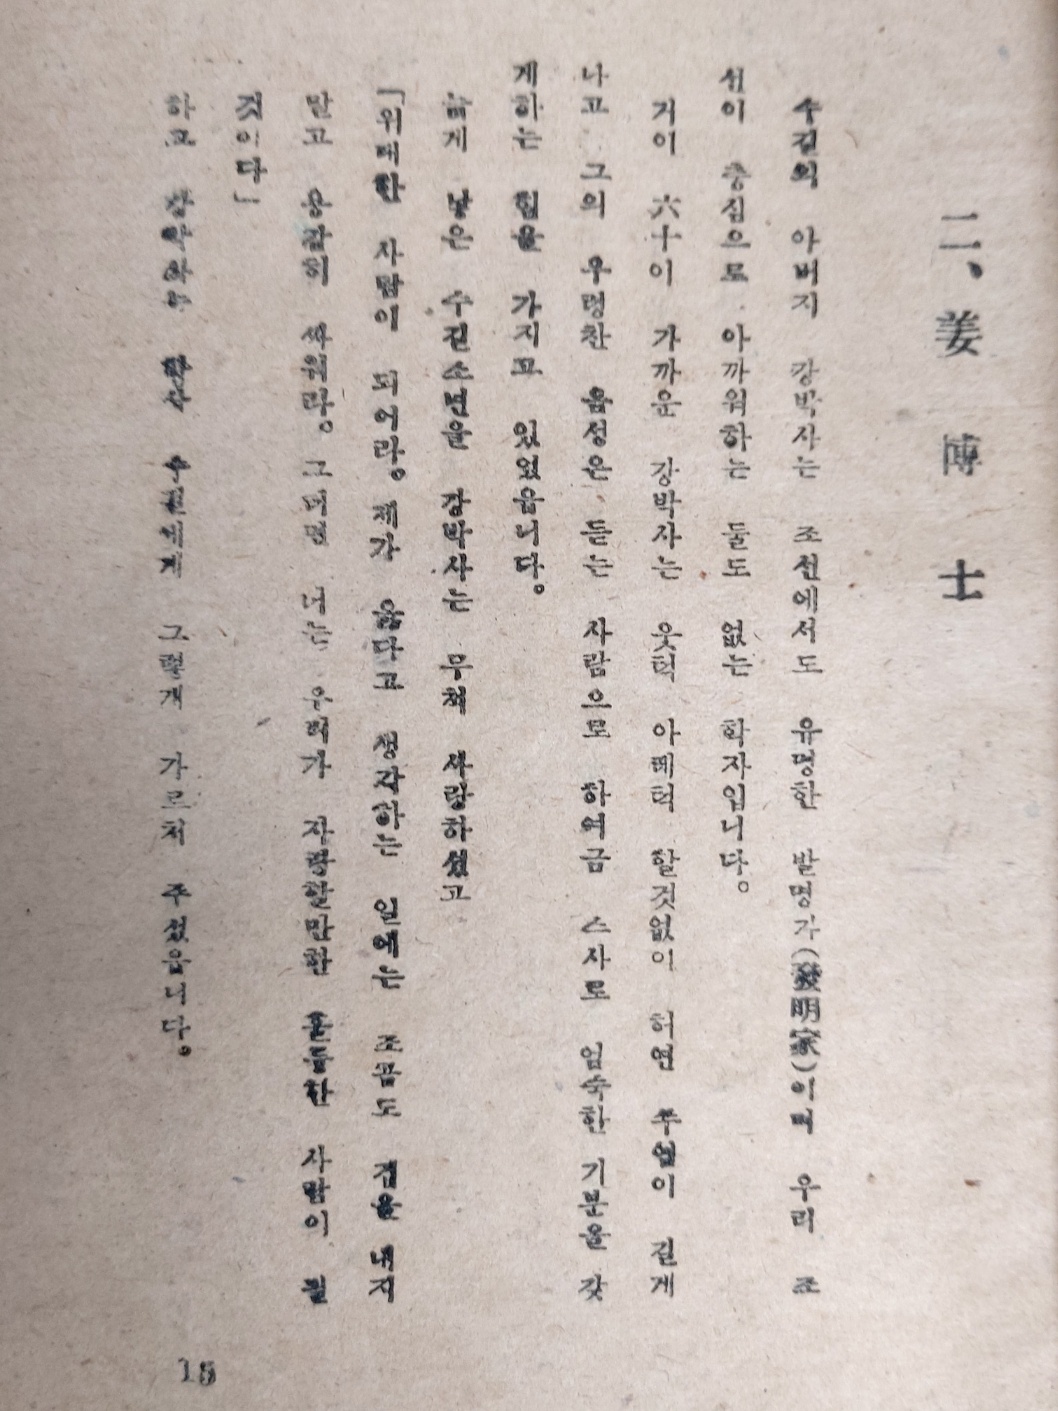 二、姜博士
수길의 아버지 강박사는 조선에서도 유명한 발명가(發明家)이며 우리 조
선이 충심으로 아까워하는 둘도 없는 학자입니다。
거이 六十이 가까운 강박사는 웃턱 아래턱 할것없이 허연 수염이 길게
나고 그의 우렁찬 음성은 듣는 사람으로 하여금 스사로 엄숙한 기분을 갖
게하는 힘을 가지고 있었읍니다。
늙게 낳은 수길소년을 강박사는 무척 사랑하셨고
「위대한 사람이 되어라。제가 옳다고 생각하는 일에는 조금도 겁을 내지
말고 용감히 싸워라。그러면 너는 우리가 자랑할만한 훌륭한 사람이 될
것이다」
하고 강박사는 항상 수길에게 그렇게 가르처 주셨읍니다。
15